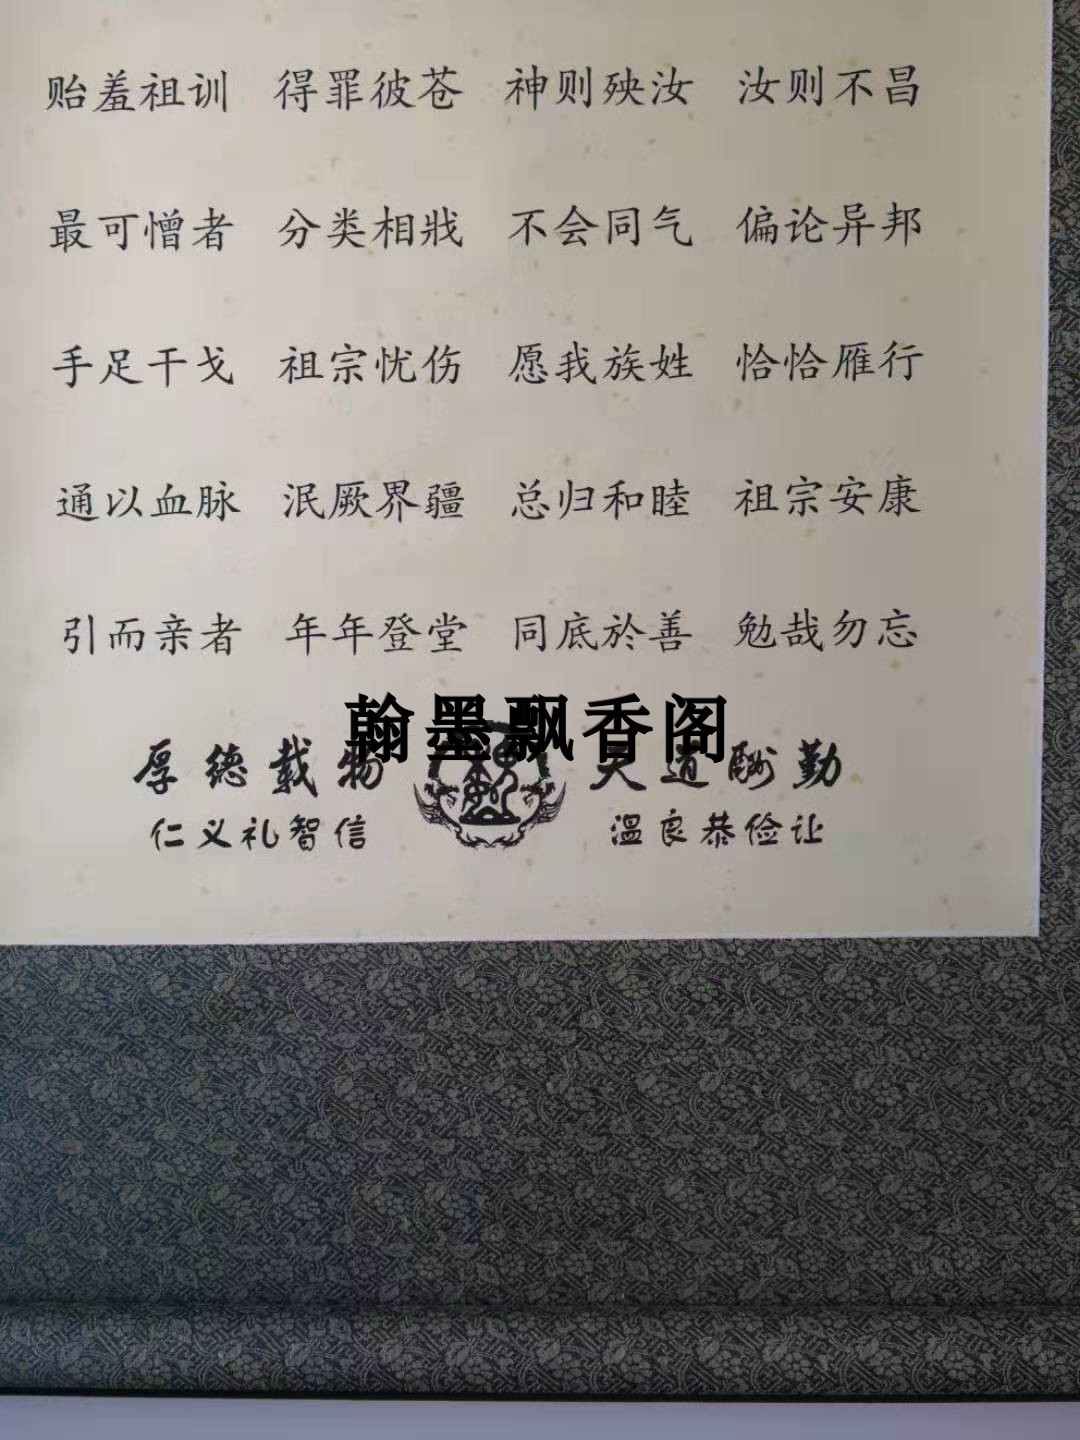 贻羞祖训 得罪彼苍 神则殃汝 汝则不昌
最可憎者 分类相戕 不会同气 偏论异邦
手足干戈 祖宗忧伤 愿我族姓 恰恰雁行
通以血脉 泯厥界疆 总归和睦 祖宗安康
引而亲者 年年登堂 同底於善 勉哉勿忘
翰墨飘香阁
厚德载物 天道酬勤
仁义礼智信 温良恭俭让